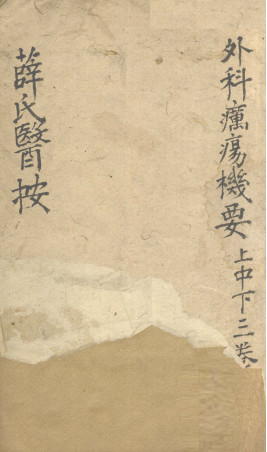 外科癘瘍機要上中下三卷
薛氏醫按